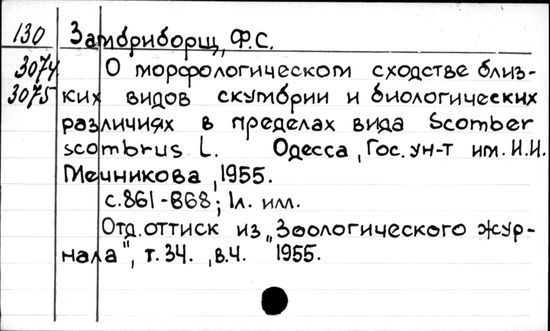 130 Замбриборщ, Ф.С.
3074 О морфологическом сходстве близ-
3075 ких видов скумбрии и биологических
различиях в пределах вида Scomber
scombrus L. Одесса, Гос. ун-т им. И.И.
Мечникова, 1955.
с.861-868; 1л. илл.
Отд. оттиск из „Зоологического жур-
нала", т. 34. , в.4. 1955.